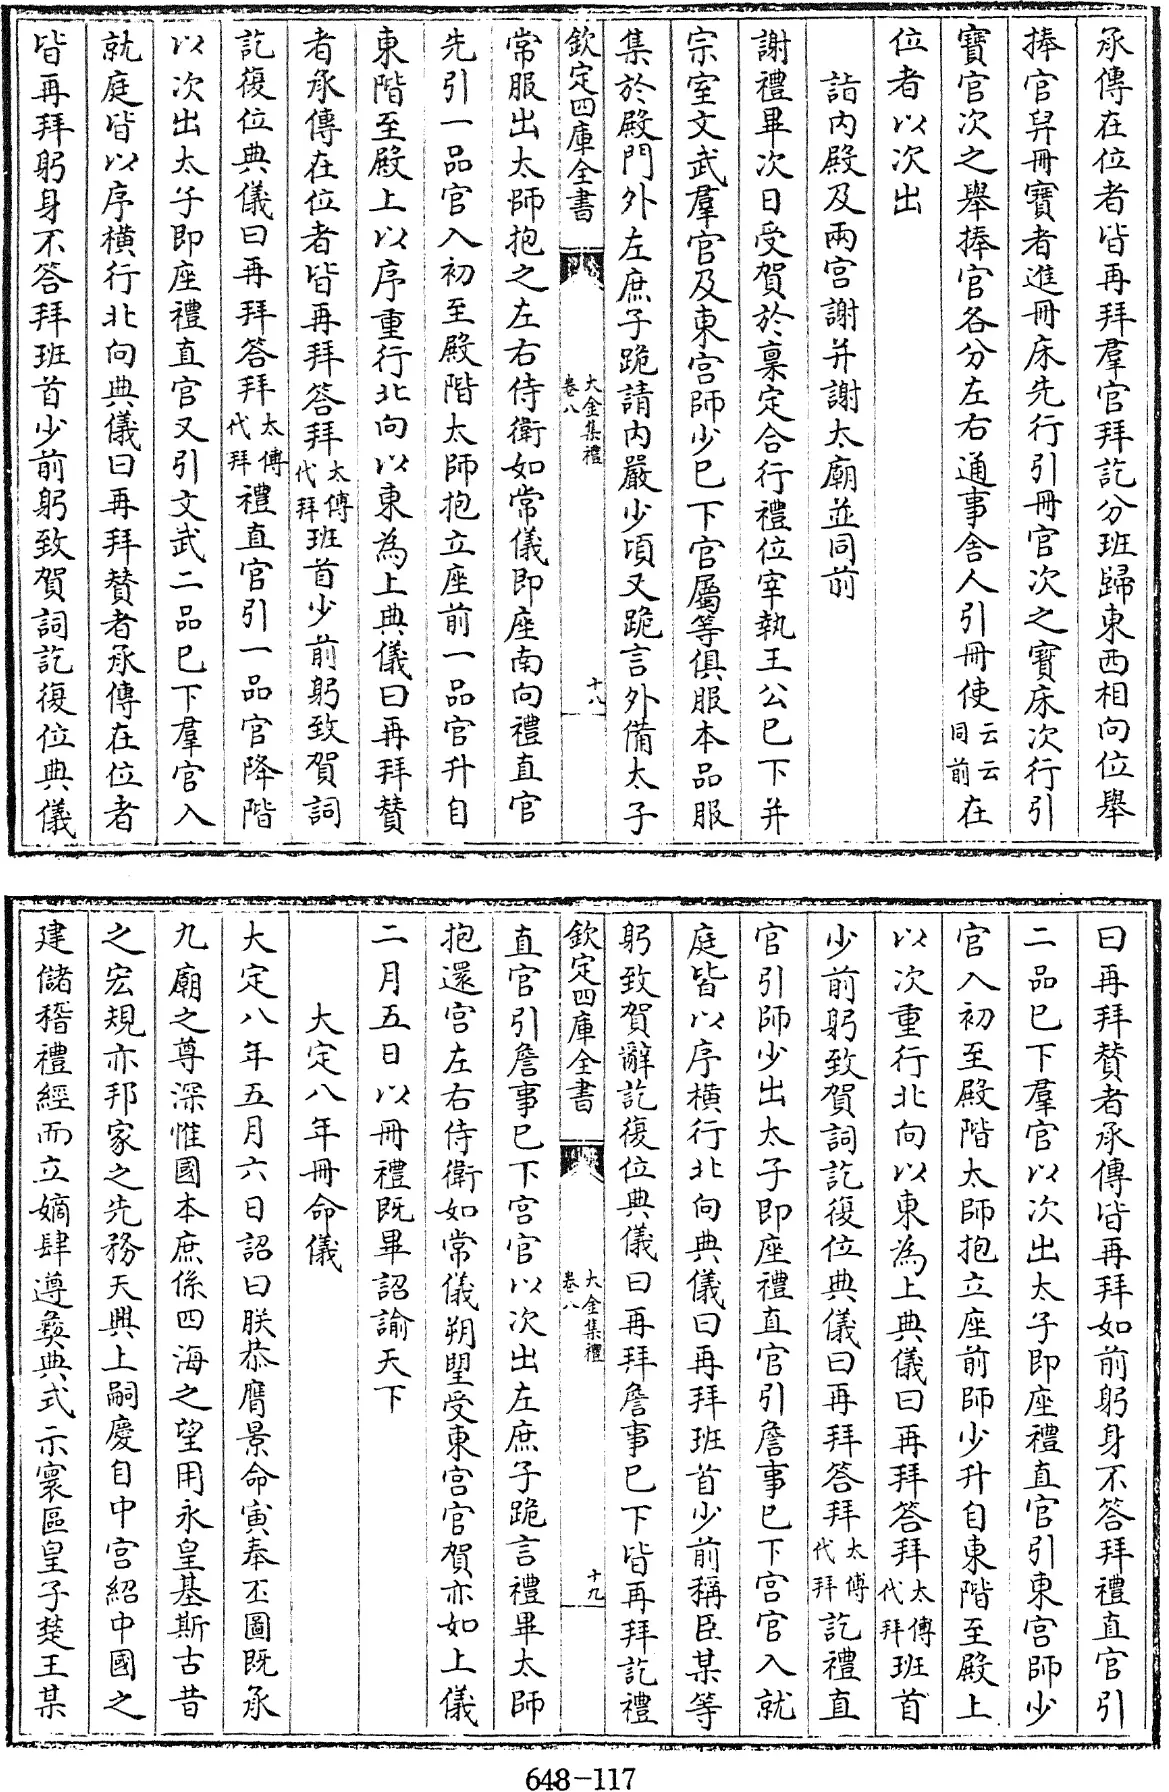 承傳在位者皆再拜羣官拜訖分班歸東西相向位舉
捧官舁冊寶者進冊床先行引冊官次之寶床次行引
寶官次之舉捧官各分左右通事舍人引冊使云云同前在
位者以次出
詣內殿及兩宮謝并謝太廟並同前
謝禮畢次日受賀於稟定合行禮位宰執王公已下并
宗室文武羣官及東宮師少已下官屬等俱服本品服
集於殿門外左庶子跪請內嚴少頃又跪言外備太子
欽定四庫全書
大金集禮
卷八
十八
常服出太師抱之左右侍衛如常儀即座南向禮直官
先引一品官入初至殿階太師抱立座前一品官升自
東階至殿上以序重行北向以東為上典儀曰再拜贊
者承傳在位者皆再拜答拜太傅代拜班首少前躬致賀詞
訖復位典儀曰再拜答拜太傅代拜禮直官引一品官降階
以次出太子即座禮直官又引文武二品已下羣官入
就庭皆以序橫行北向典儀曰再拜贊者承傳在位者
皆再拜躬身不答拜班首少前躬致賀詞訖復位典儀
曰再拜贊者承傳皆再拜如前躬身不答拜禮直官引
二品已下羣官以次出太子即座禮直官引東宮師少
官入初至殿階太師抱立座前師少升自東階至殿上
以次重行北向以東為上典儀曰再拜答拜太傅代拜班首
少前躬致賀詞訖復位典儀曰再拜答拜太傅代拜訖禮直
官引師少出太子即座禮直官引詹事已下宮官入就
庭皆以序橫行北向典儀曰再拜班首少前稱臣某等
躬致賀辭訖復位典儀曰再拜詹事已下皆再拜訖禮
欽定四庫全書
大金集禮
卷八
十九
直官引詹事已下宮官以次出左庶子跪言禮畢太師
抱還宮左右侍衛如常儀朔朢受東宮官賀亦如上儀
二月五日以冊禮既畢詔諭天下
大定八年冊命儀
大定八年五月六日詔曰朕恭膺景命寅奉丕圖既承
九廟之尊深惟國本庶係四海之望用永皇基斯古昔
之宏規亦邦家之先務天興上嗣慶自中宮紹中國之
建儲稽禮經而立嫡肆遵彜典式示寰區皇子楚王某
648-117